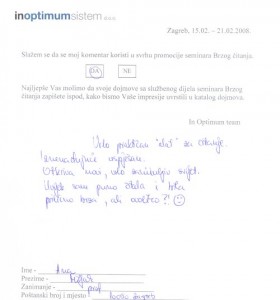 inoptimumsistem d.o.o.
Zagreb, 15.02. – 21.02.2008.
Slažem se da se moj komentar koristi u svrhu promocije seminara Brzog čitanja.
DA
NE
Najljepše Vas molimo da svoje dojmove sa službenog dijela seminara Brzog
čitanja zapišete ispod, kako bismo Vaše impresije uvrstili u katalog dojmova.
In Optimum team
Vrlo praktičan "alat" za čitanje.
Iznenađujuće uspješan.
Otkriva novi, vrlo zanimljiv svijet.
Uvijek sam puno čitala i bila
prilično brza, ali ovoliko?!
Ime - Ana
Prezime -
Zanimanje - prof.
Poštanski broj i mjesto - Zagreb